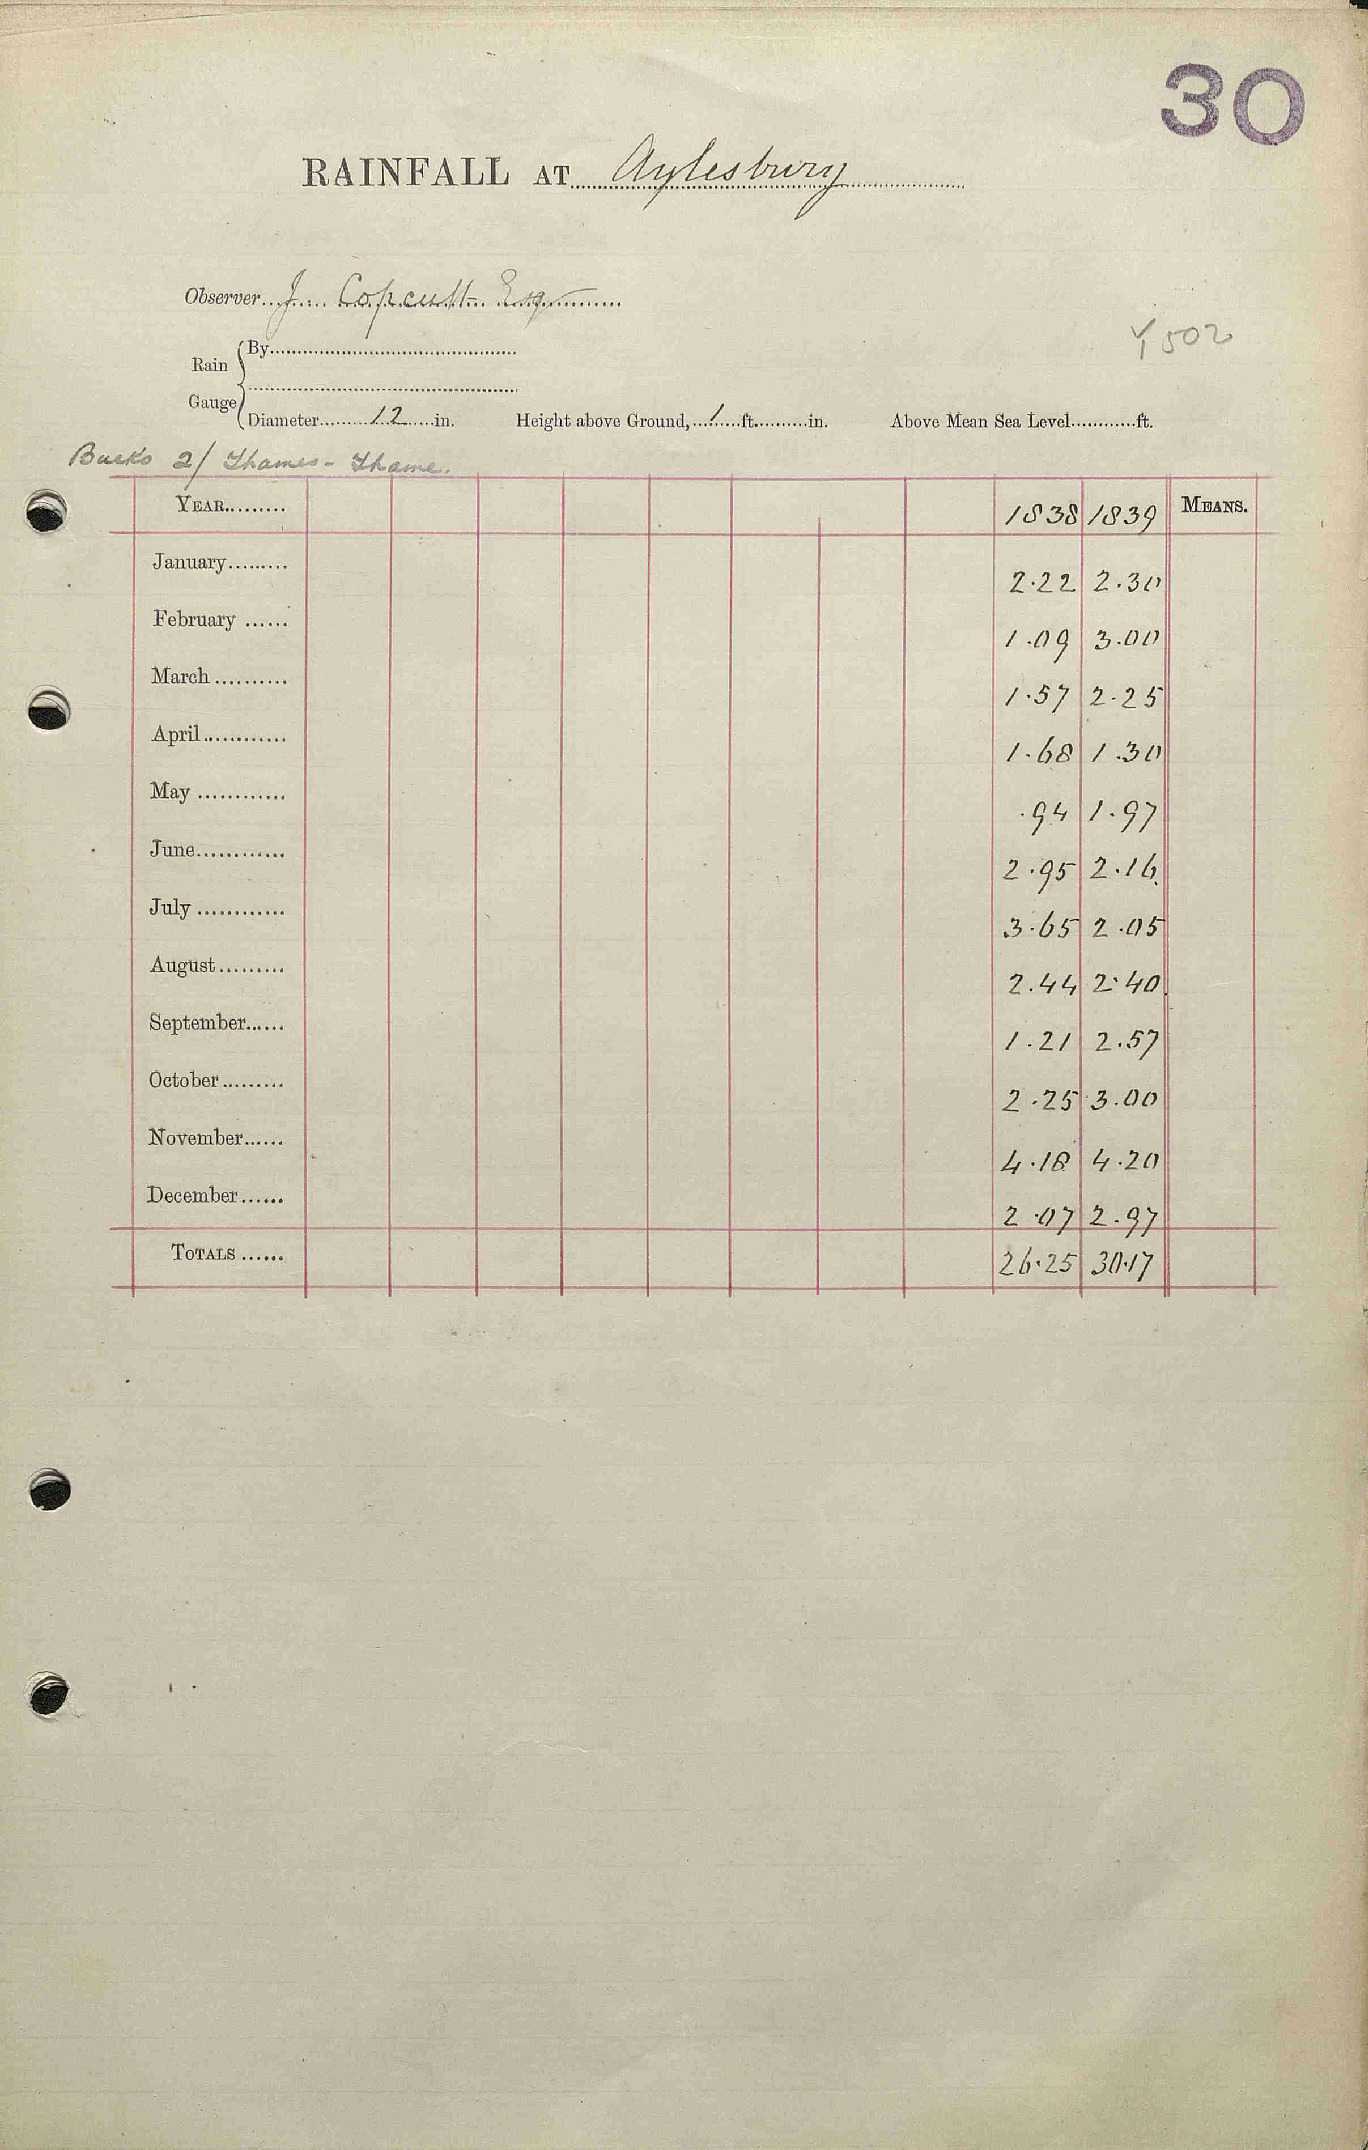 30
RAINFALL AT Aylesbury
Observer J. Copcutt Esq
Y502
Rain Gauge
By
Diameter 12 in. Height above Ground, 1 ft. in. Above Mean Sea Level ft.
Bucks 2/ Thames - Thame.
YEAR 1838 1839 MEANS.
January 2.22 2.30
February 1.09 3.00
March 1.57 2.25
April 1.68 1.30
May .94 1.97
June 2.95 2.16
July 3.65 2.05
August 2.44 2.40
September 1.21 2.57
October 2.25 3.00
November 4.18 4.20
December 2.07 2.97
TOTALS 26.25 30.17